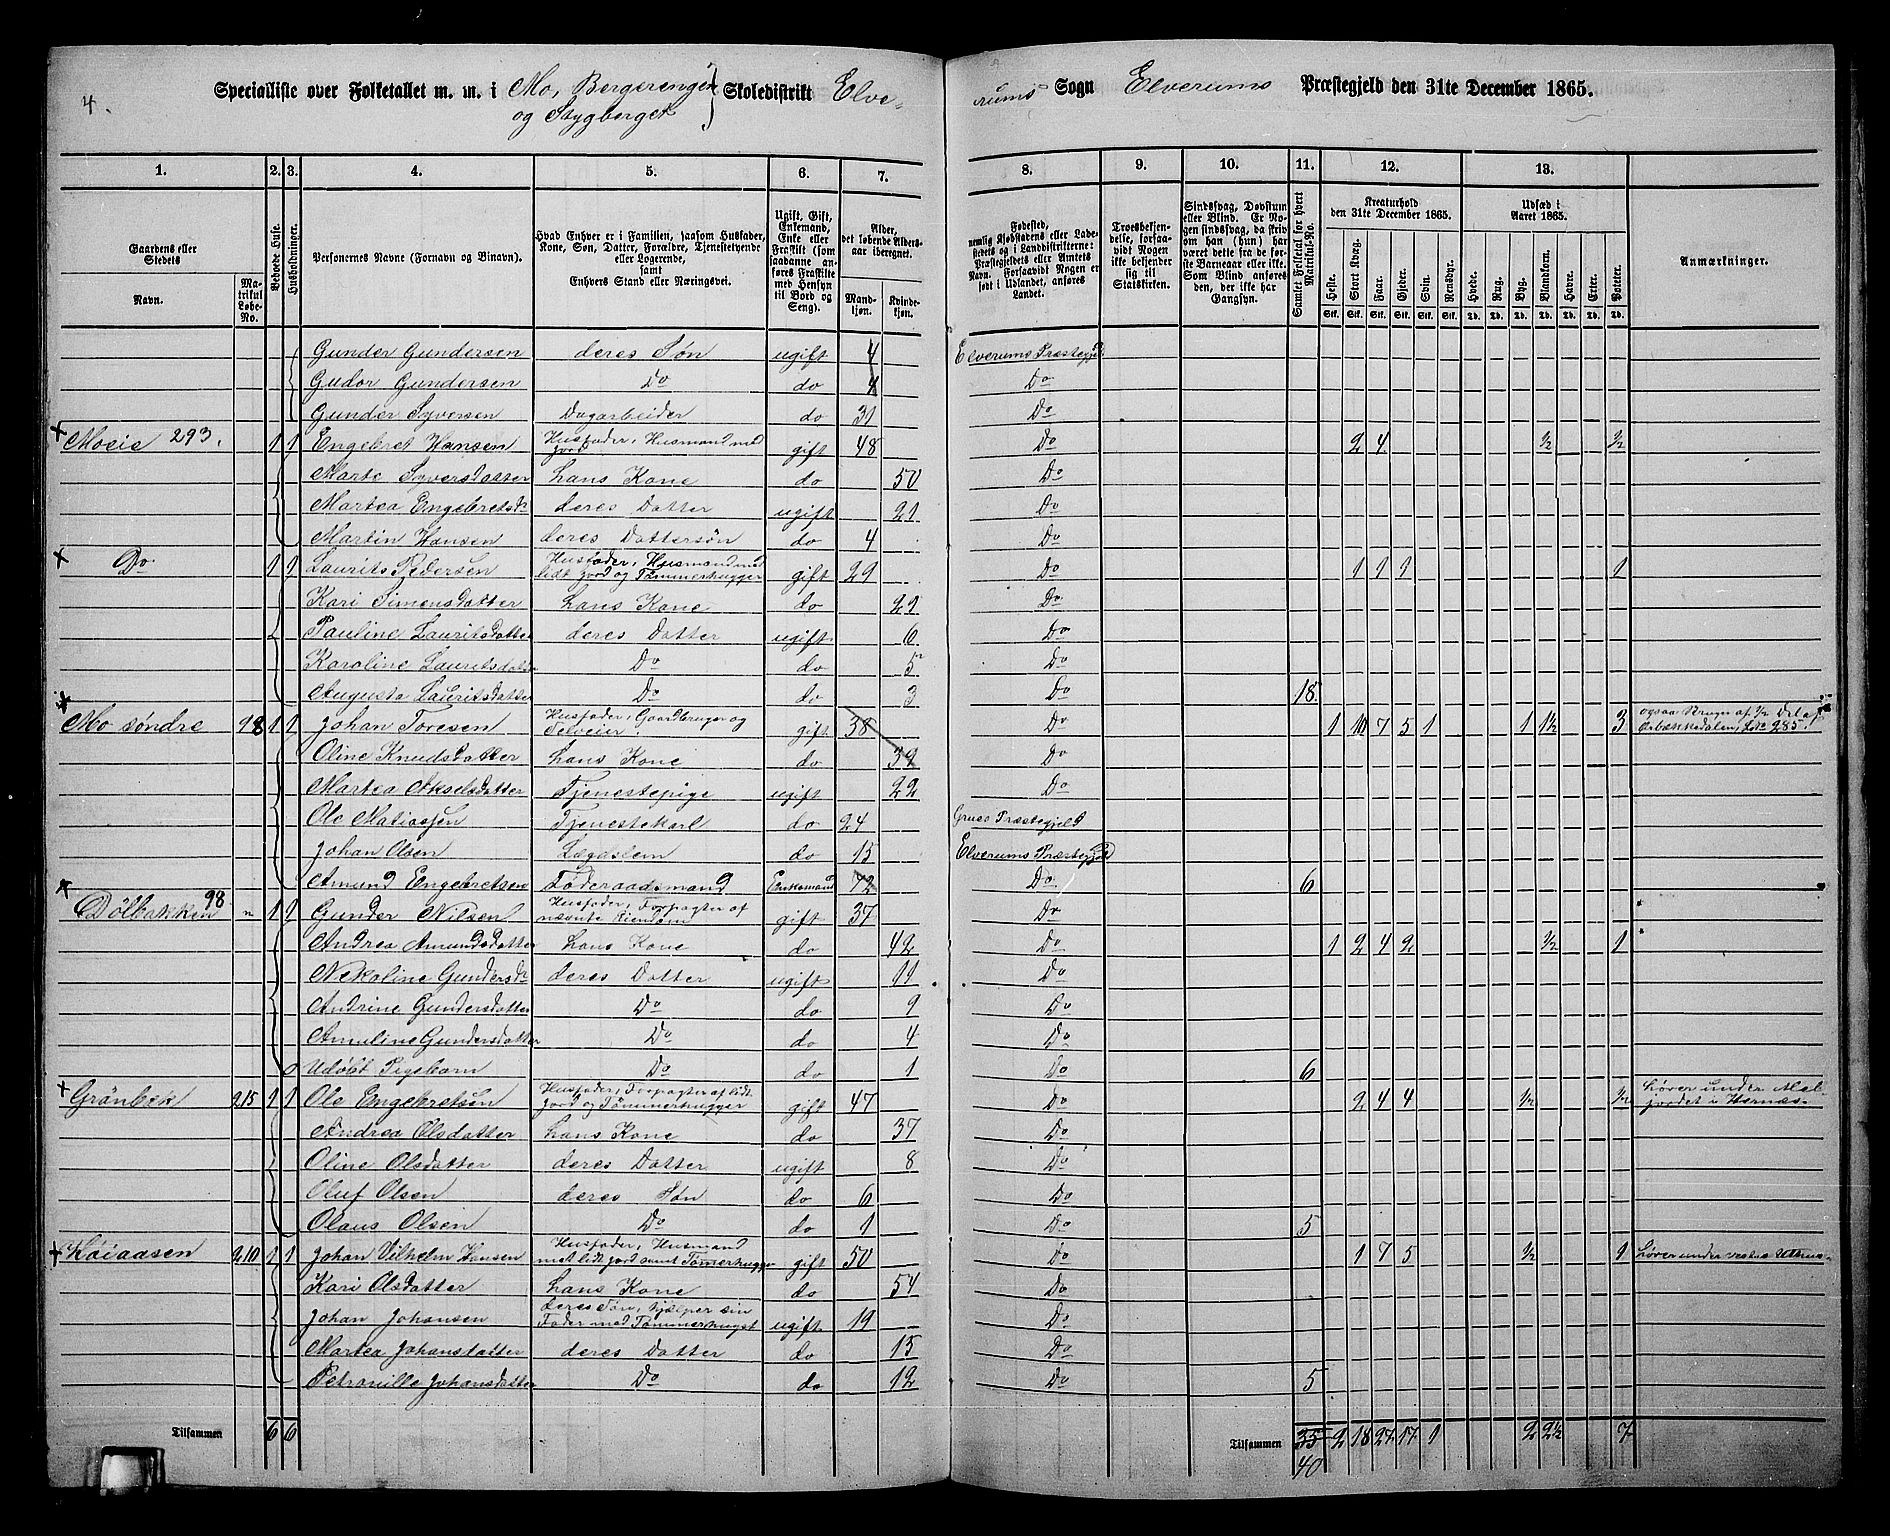 4.
Specialliste over Folketallet m. m. i Mo, Bergerengen og Stygberget } Skoledistrikt Elve-
rums Sogn Elverums Præstegjeld den 31te December 1865.
1. 2. 3. 4. 5. 6. 7. 8. 9. 10. 11. 12. 13.
Gaardens eller Stedets
Navn.
Matrikul Løbe-No.
Beboede Huse.
Husholdninger.
Personernes Navne (Fornavn og Binavn).
Hvad Enhver er i Familien, saasom Husfader, Kone, Søn, Datter, Forældre, Tjenestetyende eller Logerende, samt Enhvers Stand eller Næringsvei.
Ugift, Gift, Enkemand, Enke eller Fraskilt (som saadanne anføres Fraskilte med Hensyn til Bord og Seng).
Alder, det løbende Aldersaar iberegnet.
Mandkjøn. Kvindekjøn.
Fødested, nemlig Kjøbstadens eller Ladestedets og i Landdistrikterne: Præstegjeldets eller Amtets Navn. Forsaavidt Nogen er født i Udlandet, anføres Landet.
Troesbekjendelse, forsaavidt Nogen ikke bekjender sig til Statskirken.
Sindssvag, Døvstum eller Blind. Er Nogen sindssvag, da skriv om han (hun) har været dette fra de første Barneaar eller ikke. Som Blind anføres den, der ikke har Gangsyn.
Samlet Folketal for hvert Matrikul-No.
Kreaturhold den 31te December 1865.
Heste. Stort Kvæg. Faar. Gjeder. Svin. Rensdyr.
Udsæd i Aaret 1865.
Hvede. Rug. Byg. Blandkorn. Havre. Erter. Poteter.
Stk. Stk. Stk. Stk. Stk. Stk. Td. Td. Td. Td. Td. Td. Td.
Anmærkninger.
Gunder Gundersen deres Søn ugift 4 Elverums Præstegjeld
Gudor Gundersen Do do 4 Do
Gunder Syversen Dagarbeider do 31 Do
Moeie 293. 1 1 Engebret Hansen Husfader, Husmand med jord gift 48 Do 2 4 1/2 1/2
Marte Syversdatter hans Kone do 50 Do
Martea Engebretsdr deres Datter ugift 21 Do
Martin Hansen deres Dattersøn do 4 Do
Do 1 1 Laurits Pedersen Husfader, Husmand med lidt jord og Tømmerhugger gift 29 Do 1 1 1 1
Kari Simensdatter hans Kone do 29 Do
Pauline Lauritsdatter deres Datter ugift 6 Do
Karoline Lauritsdatter Do do 5 Do
Augusta Lauritsdatter Do do 3 Do 18
Mo søndre 98 1 1 Johan Toresen Husfader, Gaardbruger og Selveier gift 38 Do 1 10 7 5 1 1 1½ 3
Oline Knudsdatter hans Kone do 39 Do
Martea Akselsdatter Tjenestepige ugift 22 Do
Ole Matiassen Tjenestekarl do 24 Grue Præstegjeld
Johan Olsen Lægdslem do 15 Elverums Præstegjeld
Amund Engebretsen Føderaadsmand Enkemand 72 Do 6
Dølbakken 98 " 1 1 Gunder Nilsen Husfader, Forpagter af nævnte Eiendom gift 37 Do
Andrea Amundsdatter hans Kone do 42 Do 1 2 4 2 1/2 1
Nekoline Gundersdr deres Datter ugift 11 Do
Andrine Gundersdatter Do do 9 Do
Anneline Gundersdatter Do do 4 Do
Udøbt Pigebarn Do do 1 Do 6
Grønbek 215 1 1 Ole Engebretsen Husfader, Forpagter af lidt jord og Tømmerhugger gift 47 Do 2 4 4 1/2 1/2
Andrea Olsdatter hans Kone do 37 Do
Oline Olsdatter deres Datter ugift 8 Do
Oluf Olsen deres Søn do 6 Do
Olaus Olsen Do do 1 Do 5
Koiaasen 210 1 1 Johan Vilhelm Hansen Husfader, Husmand med lidt jord samt Tømerhugger gift 50 Do 1 7 5 1/2 1
Kari Olsdatter hans Kone do 54 Do
Johan Johansen deres Søn, hjælper sin Fader med Tømmerhugst ugift 19 Do
Martea Johansdatter deres Datter do 15 Do
Petronille Johansdatter Do do 12 Do 5
Tilsammen 6 6
Tilsammen 35 2 18 27 17 1 2 2½ 7
40